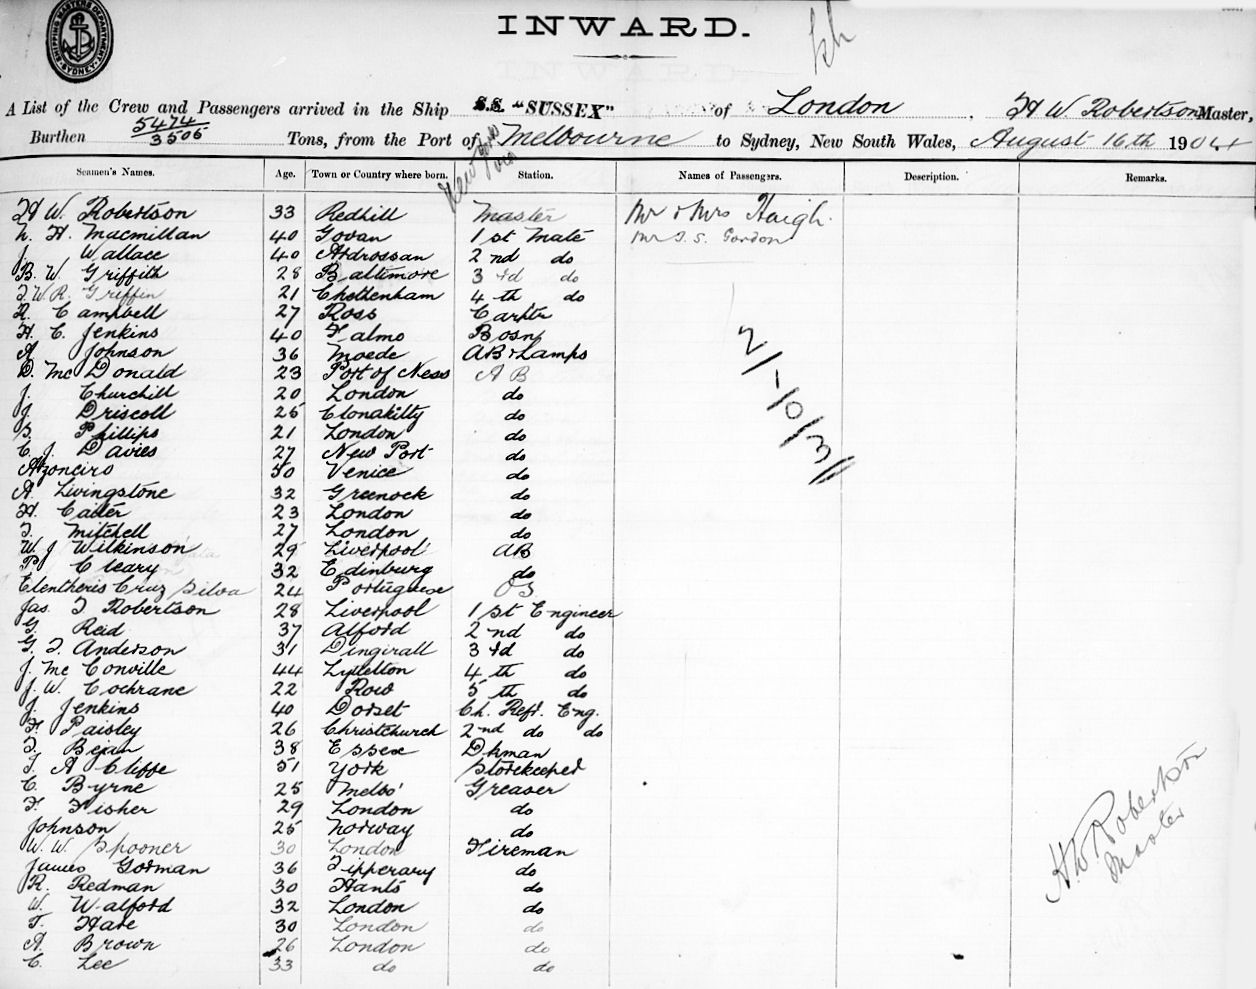 SHIPPING MASTERS DEPARTMENT SYDNEY
INWARD.
A List of the Crew and Passengers arrived in the Ship S.S. "SUSSEX" of London. H W. Robertson Master,
Burthen 5474/3505 Tons, from the Port of Melbourne to Sydney, New South Wales, August 16th 1904
Seamen's Names. Age. Town or Country where born. Station. Names of Passengers. Description. Remarks.
H W. Robertson 33 Redhill Master Mr & Mrs Haigh.
H. Macmillan 40 Govan 1st Mate Mr J. S. Gordon
J. Wallace 40 Ardrossan 2nd do
B. W. Griffith 28 Baltimore 3rd do
W. R. Griffin 21 Cheltenham 4th do
R. Campbell 27 Ross Carptr
H. C. Jenkins 40 Falmo Bosn
A. Johnson 36 Moede AB & Lamps
D. McDonald 23 Port of Ness AB
J. Churchill 20 London do
J. Driscoll 26 Clonakilty do
Phillips 21 London do
C. J. Davies 27 New Port do
50 Venice do
A. Livingstone 32 Greenock do
H. Carter 23 London do
Mitchell 27 London do
W. J. Wilkinson 29 Liverpool AB
P. Cleary 32 Edinburg do
Elentheris Cruz Silva 24 Portuguese OS
Jas. T Robertson 28 Liverpool 1st Engineer
G. Reid 37 Alford 2nd do
G. T. Anderson 31 Dingirall 3rd do
J. McConville 44 Lyttelton 4th do
J. W. Cochrane 22 Row 5th do
J. Jenkins 40 Dorset Ch. Refr. Eng.
F. Paisley 26 Christchurch 2nd do do
T. Bejan 38 Essex Dkman
T. A Cliffe 51 York Storekeeper
C. Byrne 25 Melbo' Greaser
F. Fisher 29 London do
Johnson 25 Norway do
W. W. Spooner 30 London Fireman
James Gorman 36 Tipperary do
R. Redman 30 Hants do
W. Walford 32 London do
F. Hare 30 London do
A. Brown 26 London do
C. Lee 33 do do
2/-10/3
H. W Robertson
Master